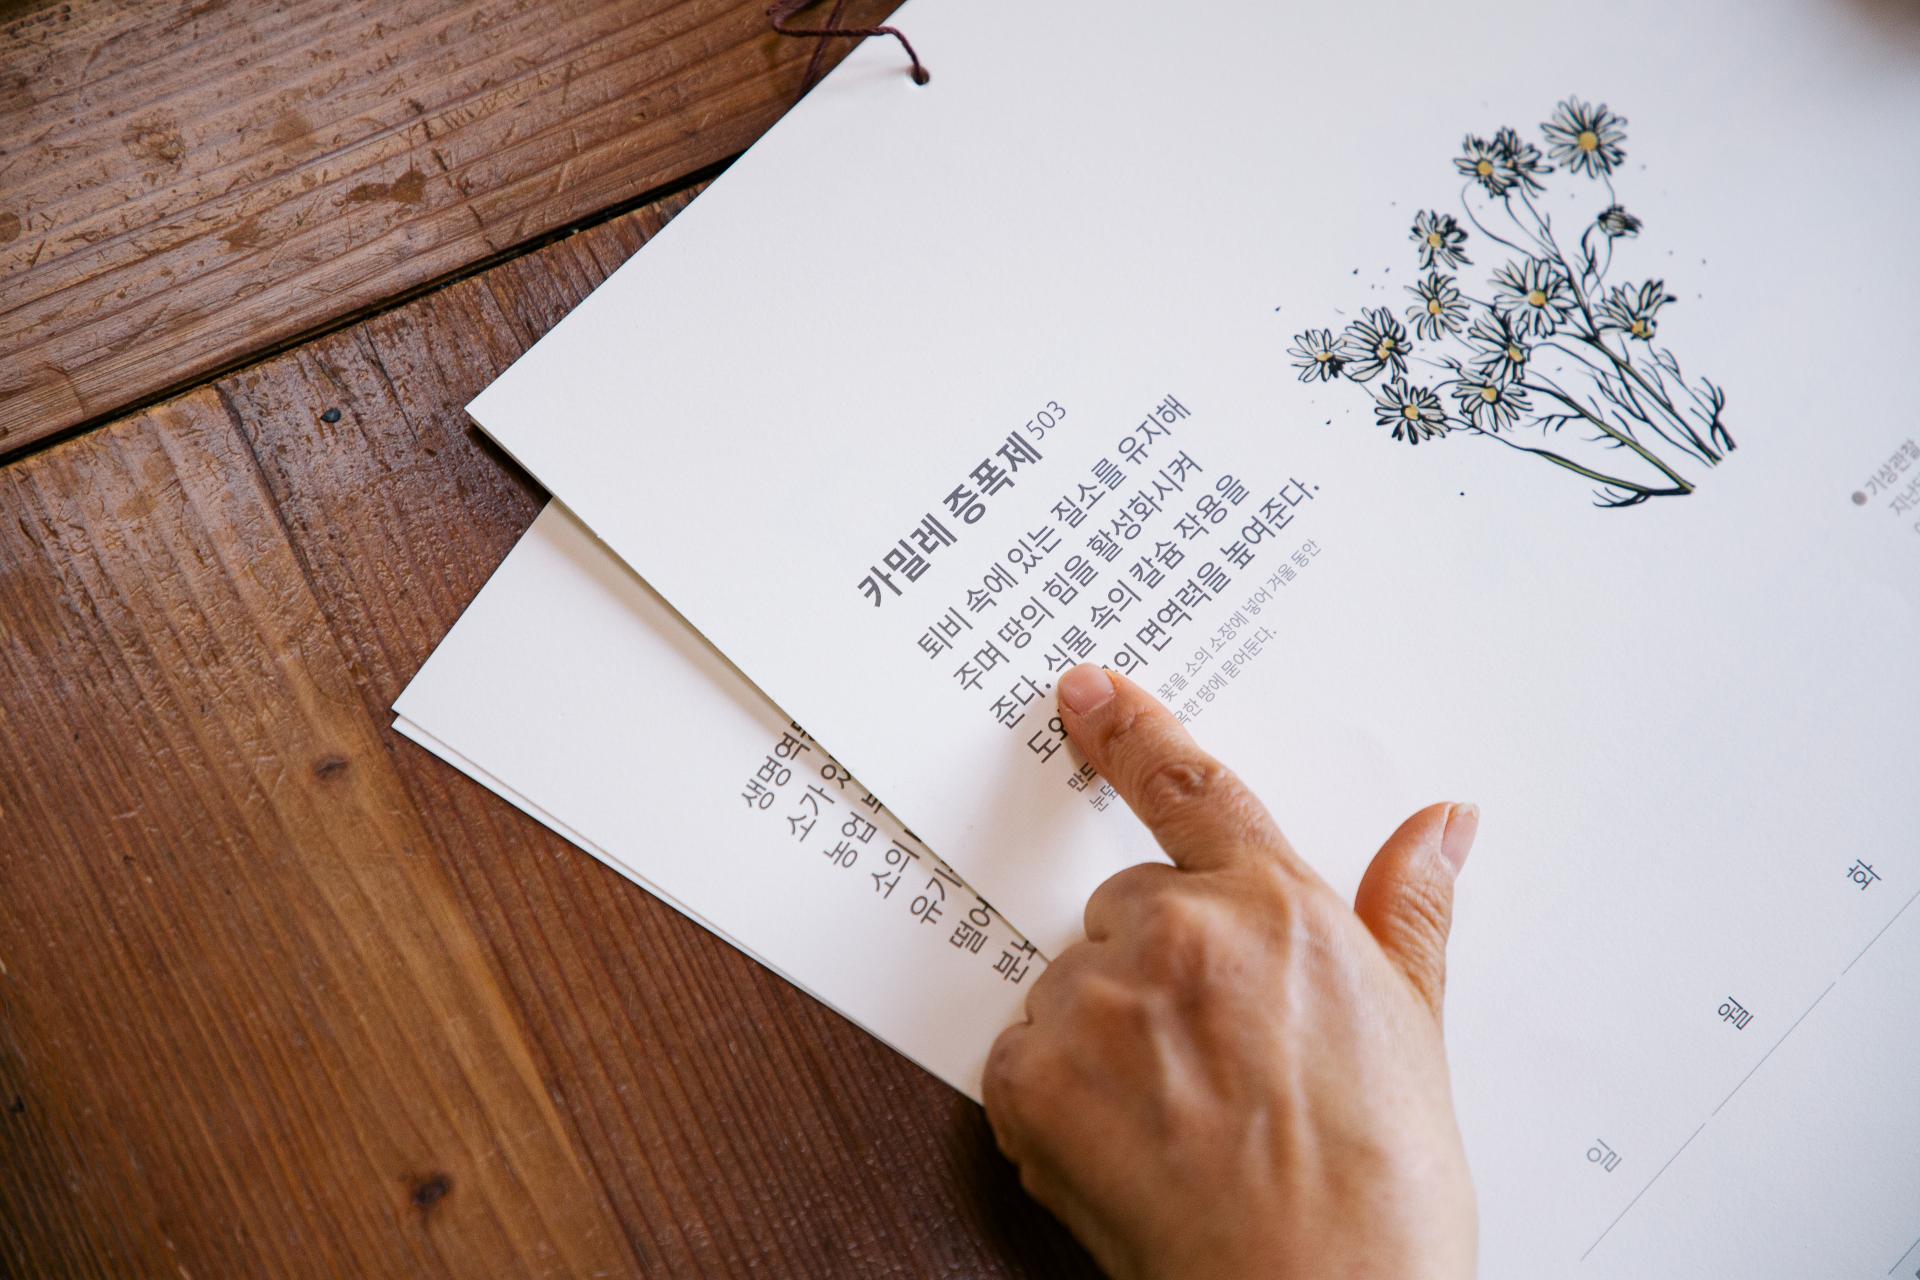 카밀레 증폭제 503
퇴비 속에 있는 질소를 유지해
주며 땅의 힘을 활성화시켜
준다. 식물 속의 칼슘 작용을
면역력을 높여준다.
꽃을 소의 소장에 넣어 겨울 동안
땅에 묻어둔다.
생명역
소가
농업
소의
유기
떨어
기상관찰
화
월
일